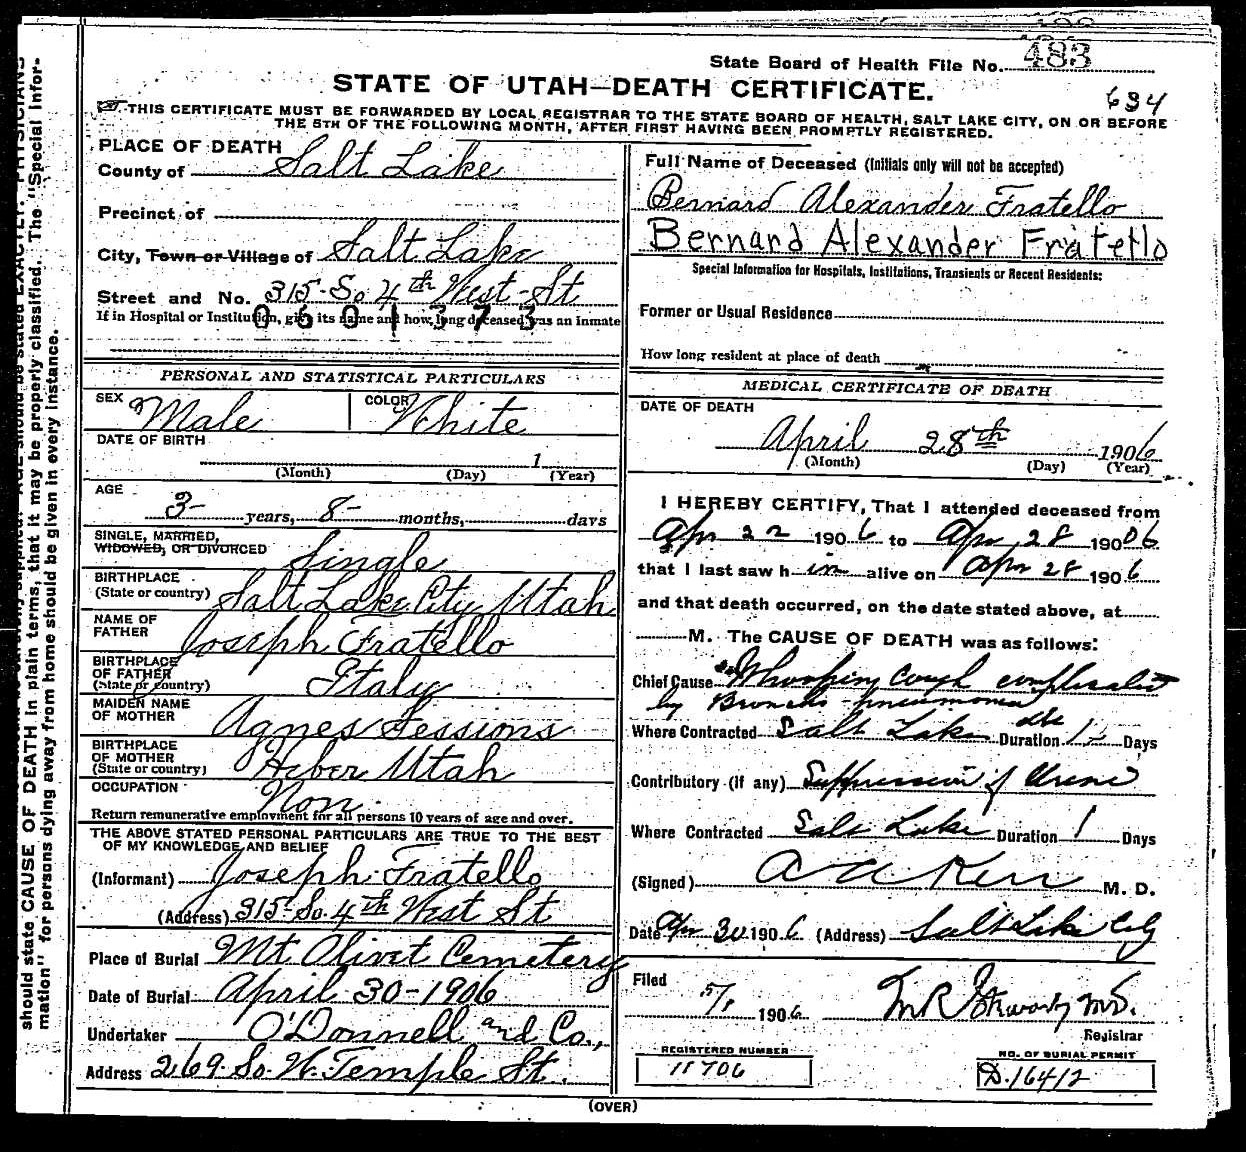 State Board of Health File No. 483
STATE OF UTAH—DEATH CERTIFICATE.
634
THIS CERTIFICATE MUST BE FORWARDED BY LOCAL REGISTRAR TO THE STATE BOARD OF HEALTH, SALT LAKE CITY, ON OR BEFORE
THE 5TH OF THE FOLLOWING MONTH, AFTER FIRST HAVING BEEN PROMPTLY REGISTERED.
PLACE OF DEATH
County of Salt Lake
Precinct of
City, Town or Village of Salt Lake
Street and No. 315 So 4th West St
If in Hospital or Institution, give its name and how long deceased was an inmate
0601373
PERSONAL AND STATISTICAL PARTICULARS
SEX Male COLOR White
DATE OF BIRTH
1
(Month) (Day) (Year)
AGE
3 years, 8 months, days
SINGLE, MARRIED,
WIDOWED, OR DIVORCED Single
BIRTHPLACE
(State or country) Salt Lake City Utah
NAME OF
FATHER Joseph Fratello
BIRTHPLACE
OF FATHER
(State or country) Italy
MAIDEN NAME
OF MOTHER Agnes Sessions
BIRTHPLACE
OF MOTHER
(State or country) Heber Utah
OCCUPATION Non
Return remunerative employment for all persons 10 years of age and over.
THE ABOVE STATED PERSONAL PARTICULARS ARE TRUE TO THE BEST
OF MY KNOWLEDGE AND BELIEF
(Informant) Joseph Fratello
(Address) 315 So. 4th West St
Place of Burial Mt Olivet Cemetery
Date of Burial April 30-1906
Undertaker O'Donnell and Co.,
Address 269 So. W. Temple St.
Full Name of Deceased (Initials only will not be accepted)
Bernard Alexander Fratello
Bernard Alexander Fratello
Special Information for Hospitals, Institutions, Transients or Recent Residents:
Former or Usual Residence
How long resident at place of death
MEDICAL CERTIFICATE OF DEATH
DATE OF DEATH
April 28th 1906
(Month) (Day) (Year)
I HEREBY CERTIFY, That I attended deceased from
Apr 22 1906 to Apr 28 1906
that I last saw him alive on Apr 28 1906
and that death occurred, on the date stated above, at
M. The CAUSE OF DEATH was as follows:
Chief Cause Whooping cough complicated
by Broncho-pneumonia
Where Contracted Salt Lake Duration Days
Contributory (if any) Suppression of Urine
Where Contracted Salt Lake Duration 1 Days
(Signed) Kerr M. D.
Date Apr 30 1906 (Address) Salt Lake City
Filed 5/1 1906 M R
Registrar
REGISTERED NUMBER
NO. OF BURIAL PERMIT
D.16412
(OVER)
should state CAUSE OF DEATH in plain terms, that it may be properly classified. The "Special Infor-
mation" for persons dying away from home should be given in every instance.